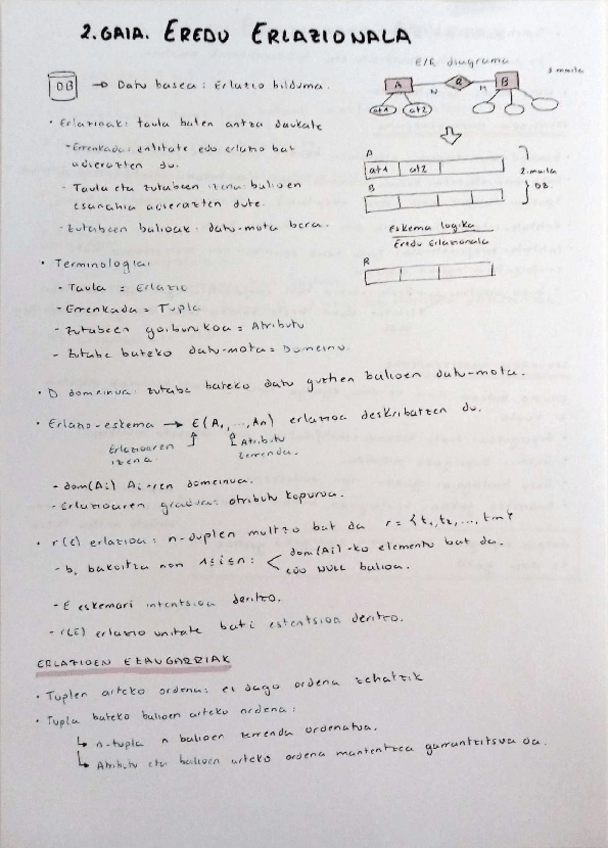 2. GAIA. EREDU ERLAZIONALA
E/R diagrama
3 maila
DB → Datu basea: Erlazio bilduma.
A N R M B
at1 at2
• Erlazioak: taula baten antza daukate
- Errenkada: entitate edo erlazio bat
adierazten du.
- Taula eta zutabeen izena: balioen
esanahia adierazten dute.
- Zutabeen balioak: datu-mota bera.
A
at1 at2
B
2. maila
DB.
eskema logika
Eredu Erlazionala
R
• Terminologia:
- Taula = Erlazio
- Errenkada = Tupla
- Zutabeen goiburukoa = Atributu
- Zutabe bateko datu-mota = Domeinu.
• D domeinua: zutabe bateko datu guztien balioen datu-mota.
• Erlazio-eskema → E(A1, ..., An) erlazioa deskribatzen du.
Erlazioaren izena.
Atributu zerrenda.
- dom(Ai) Ai-ren domeinua.
- Erlazioaren gradua: atributu kopurua.
• r(E) erlazioa: n-duplen multzo bat da r = {t1, t2, ..., tm}
- bi bakoitza non 1≤i≤n: < dom(Ai)-ko elementu bat da.
edo NULL balioa.
- E eskemari intentsioa deritzo.
- r(E) erlazio unitate bati estentsioa deritzo.
ERLAZIOEN EZAUGARRIAK
• Tuplen arteko ordena: ez dago ordena zehatzik
• Tupla bateko balioen arteko ordena:
↳ n-tupla n balioen zerrenda ordenatua.
↳ Atributu eta balioen arteko ordena mantentzea garrantzitsua da.